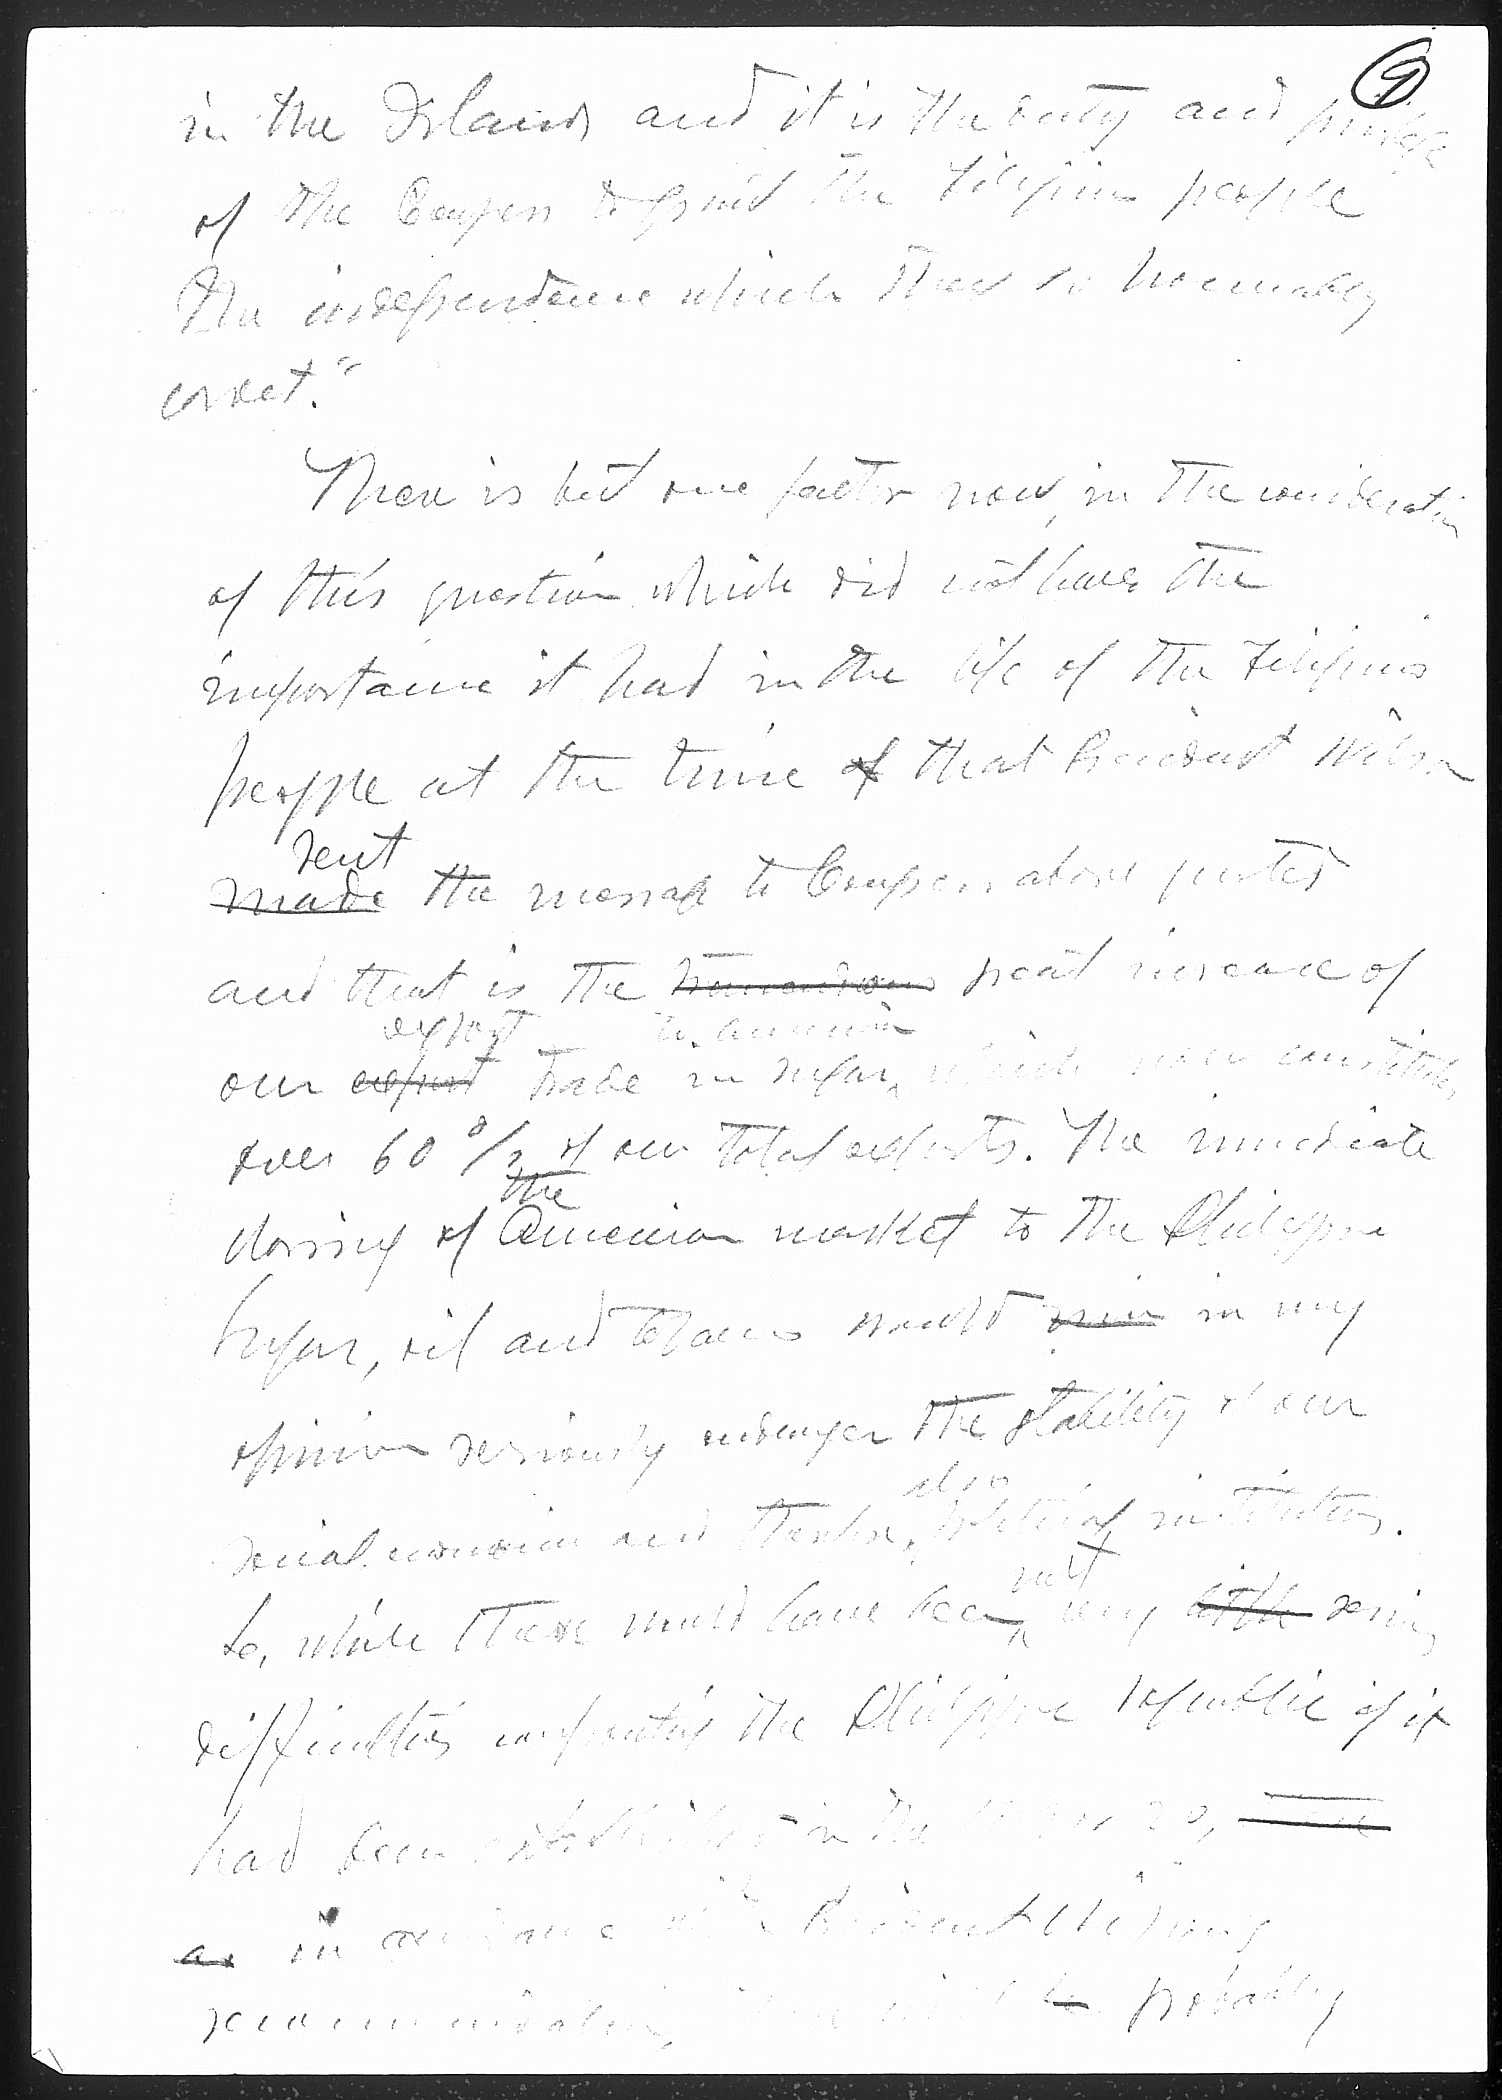 9
in the Islands and it is the duty and privilege
of the Congress to grant the Filipino people
the independence which they so honorably
covet."
There is but one factor now, in the consideration
of this question which did not have the
importance it had in the life of the Filipino
people at the time of that President Wilson
sent
made the message to Congress above quoted
and that is the tremendous great increase of
export to America
our export trade in sugar, which now constitutes
over 60 % of our total exports. The immediate
the
closing of American market to the Philippine
sugar, oil and tobacco would in my
opinion seriously endanger the stability of our
also
social economic and political institutions.
not
So, while there would have been very little serious
difficulties confronting the Philippine republic if it
had been established in the
as in President Wilson's
recommendation, probably